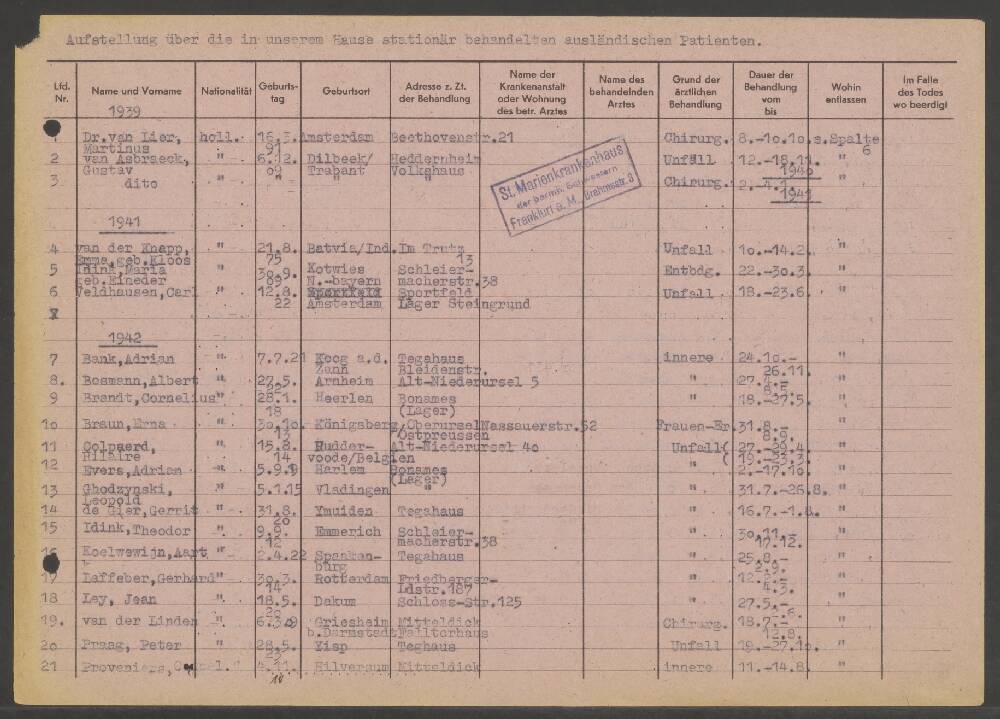 Aufstellung über die in unserem Hause stationär behandelten ausländischen Patienten.
Lfd. Nr. Name und Vorname Nationalität Geburts-tag Geburtsort Adresse z. Zt. der Behandlung Name der Krankenanstalt oder Wohnung des betr. Arztes Name des behandelnden Arztes Grund der ärztlichen Behandlung Dauer der Behandlung vom bis Wohin entlassen Im Falle des Todes wo beerdigt
1939
Dr.van Lier, holl. 16.3. Amsterdam Beethovenstr.21 Chirurg. 8.-10.10. s.Spalte
Martinus 6
2 van Asbraeck, " 6.12. Dilbeek/ Heddernheim Unfall 12.-18.11. "
Gustav 09 Trabant Volkshaus 1940
3 dito " " " " Chirurg. "
1941
St. Marienkrankenhaus
der barmh. Schwestern
Frankfurt a. M., Brahmsstr. 3
1941
4 van der Knapp, " 21.8. Batvia/Ind. Im Trutz Unfall 10.-14.2. "
Emma,geb.Kloos 75 13
5 Idink,Maria " 30.9. Kotwies Schleier- Entbdg. 22.-30.3. "
geb.Eineder 09 N.-bayern macherstr.38
6 Veldhausen,Carl " 12.8. Sportfeld Sportfeld Unfall 18.-23.6. "
22 Amsterdam Lager Steingrund
1942
7 Bank,Adrian " 7.7.21 Koog a.d. Tegahaus innere 24.10.- "
Zann Bleidenstr. 26.11.
8. Bosmann,Albert " 27.5. Arnheim Alt-Niederursel 5 " 27.4.- "
9 Brandt,Cornelius " 28.1. Heerlen Bonames " 18.-27.5. "
18 (Lager)
10 Braun,Erna " 30.10. Königsberg/ Oberursel Nassauerstr.52 Frauen-Er. 31.8.- "
13 Ostpreussen 8.9.
11 Colpaerd, " 15.8. Rudder- Alt-Niederursel 40 Unfall( 27.-29.4 "
Hilaire 14 voode/Belgien ( 19.-23.3.
12 Evers,Adrian " 5.9.19 Harlem Bonames " 2.-17.10. "
(Lager)
13 Ghodzynski, " 5.1.15 Vladingen " " 31.7.-26.8. "
Leopold
14 de Gier,Gerrit " 31.8. Ymuiden Tegahaus " 16.7.-1.8. "
20
15 Idink,Theodor " 9.9. Emmerich Schleier- " 30.11.- "
12 macherstr.38 17.12.
16 Koelwewijn,Aart " 2.4.22 Spanken- Tegahaus " 25.8.- "
burg 2.9.
17 Laffeber,Gerhard " 30.3. Rotterdam Friedberger- " 12.2.- "
14 Ldstr.187 4.3.
18 Ley, Jean " 18.5. Dakum Schloss-Str.125 " 27.5.- "
20
19. van der Linden " Griesheim Mitteldick Chirurg. 18.7.- "
b.Darmstadt Falltorhaus 12.8.
20 Praag, Peter " 28.5. Yisp Teghaus Unfall 19.-27.10. "
22
21 Proveniers, " 4.11. Hilversum Mitteldick innere 11.-14.8. "